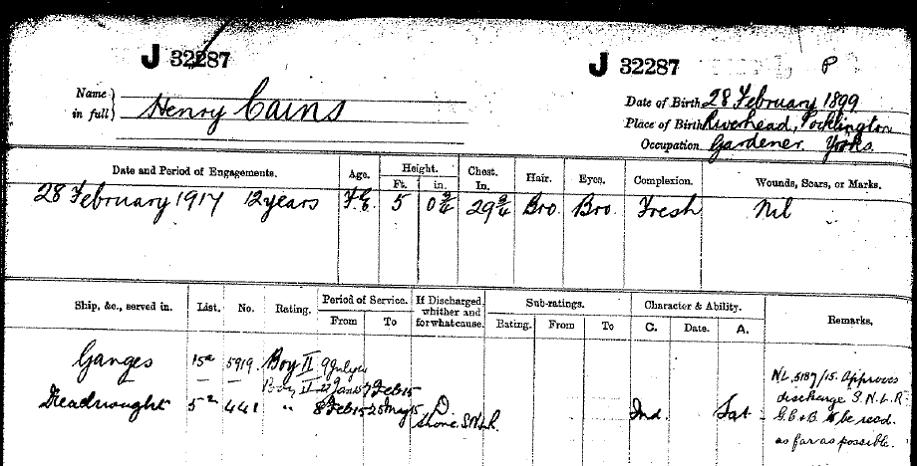 J 32287
J 32287 P
Name in full} Henry Cains
Date of Birth 28 February 1899
Place of Birth Riverhead, Pocklington
Occupation Gardener Yorks.
Date and Period of Engagements. Age. Height. Ft. in. Chest. In. Hair. Eyes. Complexion. Wounds, Scars, or Marks.
28 February 1917 12 years 5 0 3/4 29 3/4 Bro. Bro. Fresh Nil
Ship, &c., served in. List. No. Rating. Period of Service. From To If Discharged, whither and for what cause. Sub-ratings. Rating. From To Character & Ability. C. Date. A. Remarks,
Ganges 15a 5919 Boy II 9 July 14
Boy II 7 Feb 15
Dreadnought 5a 441 " 8 Feb 15 25 May 15 D. Ind. Sat
Shore S.N.L.R.
N.L. 5187/15. Approves
discharge S.N.L.R
G.C & B to be read
as far as possible.